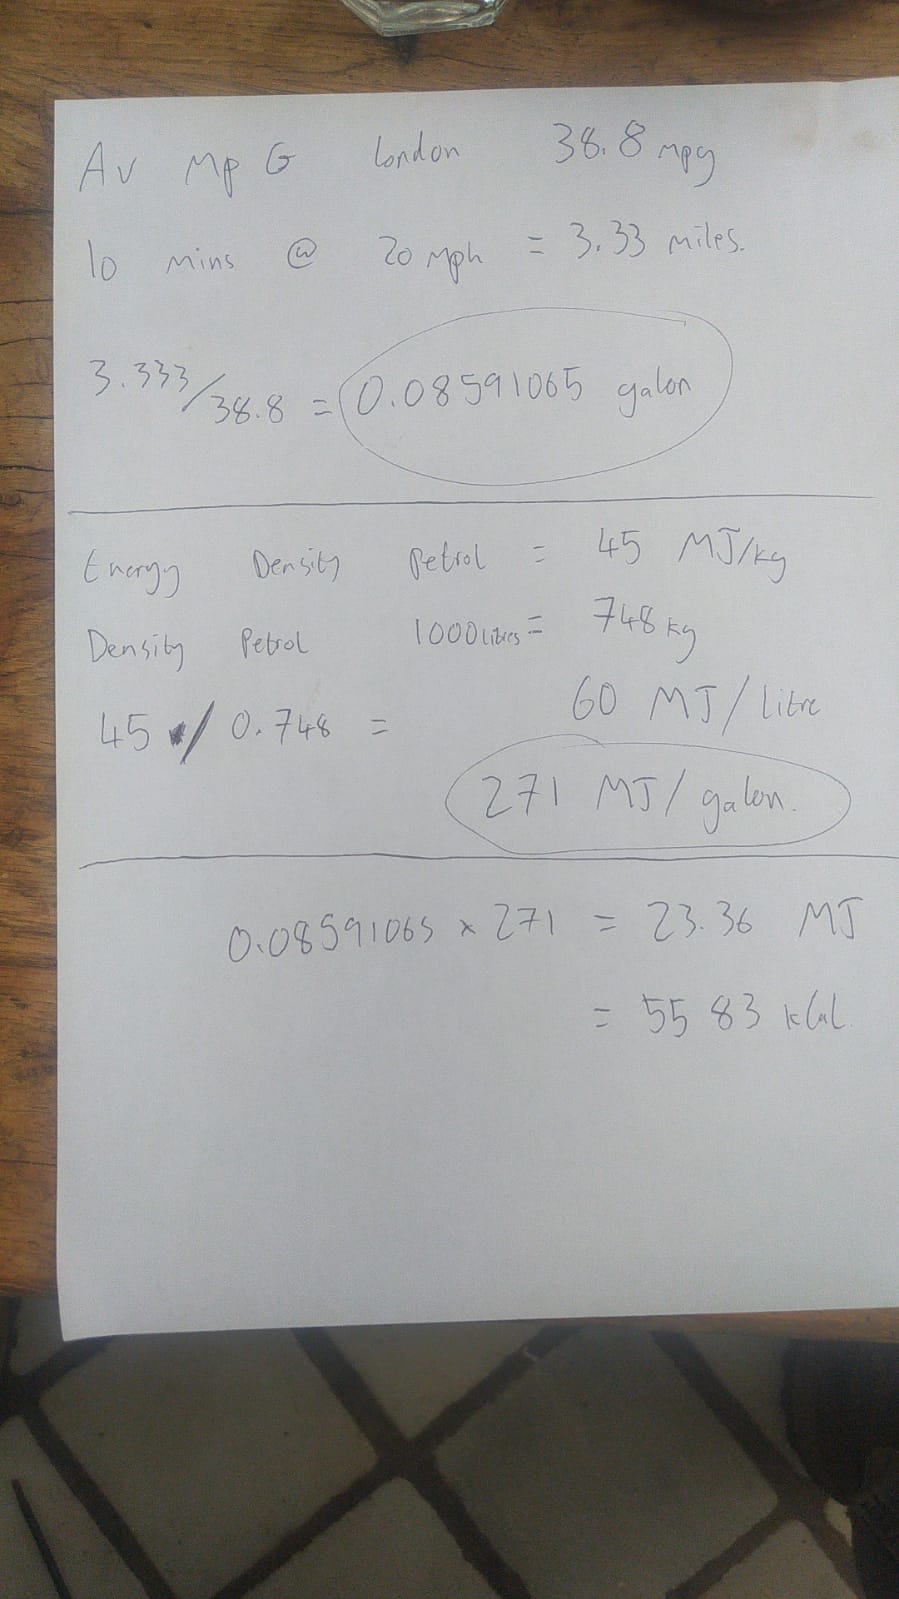 Av MpG London 38.8 mpg
10 mins @ 20 mph = 3.33 miles.
3.333/38.8 = 0.08591065 galon
Energy Density Petrol = 45 MJ/kg
Density Petrol 1000 litres = 748 kg
45 / 0.748 = 60 MJ/litre
271 MJ/galon.
0.08591065 x 271 = 23.36 MJ
= 5583 kCal.